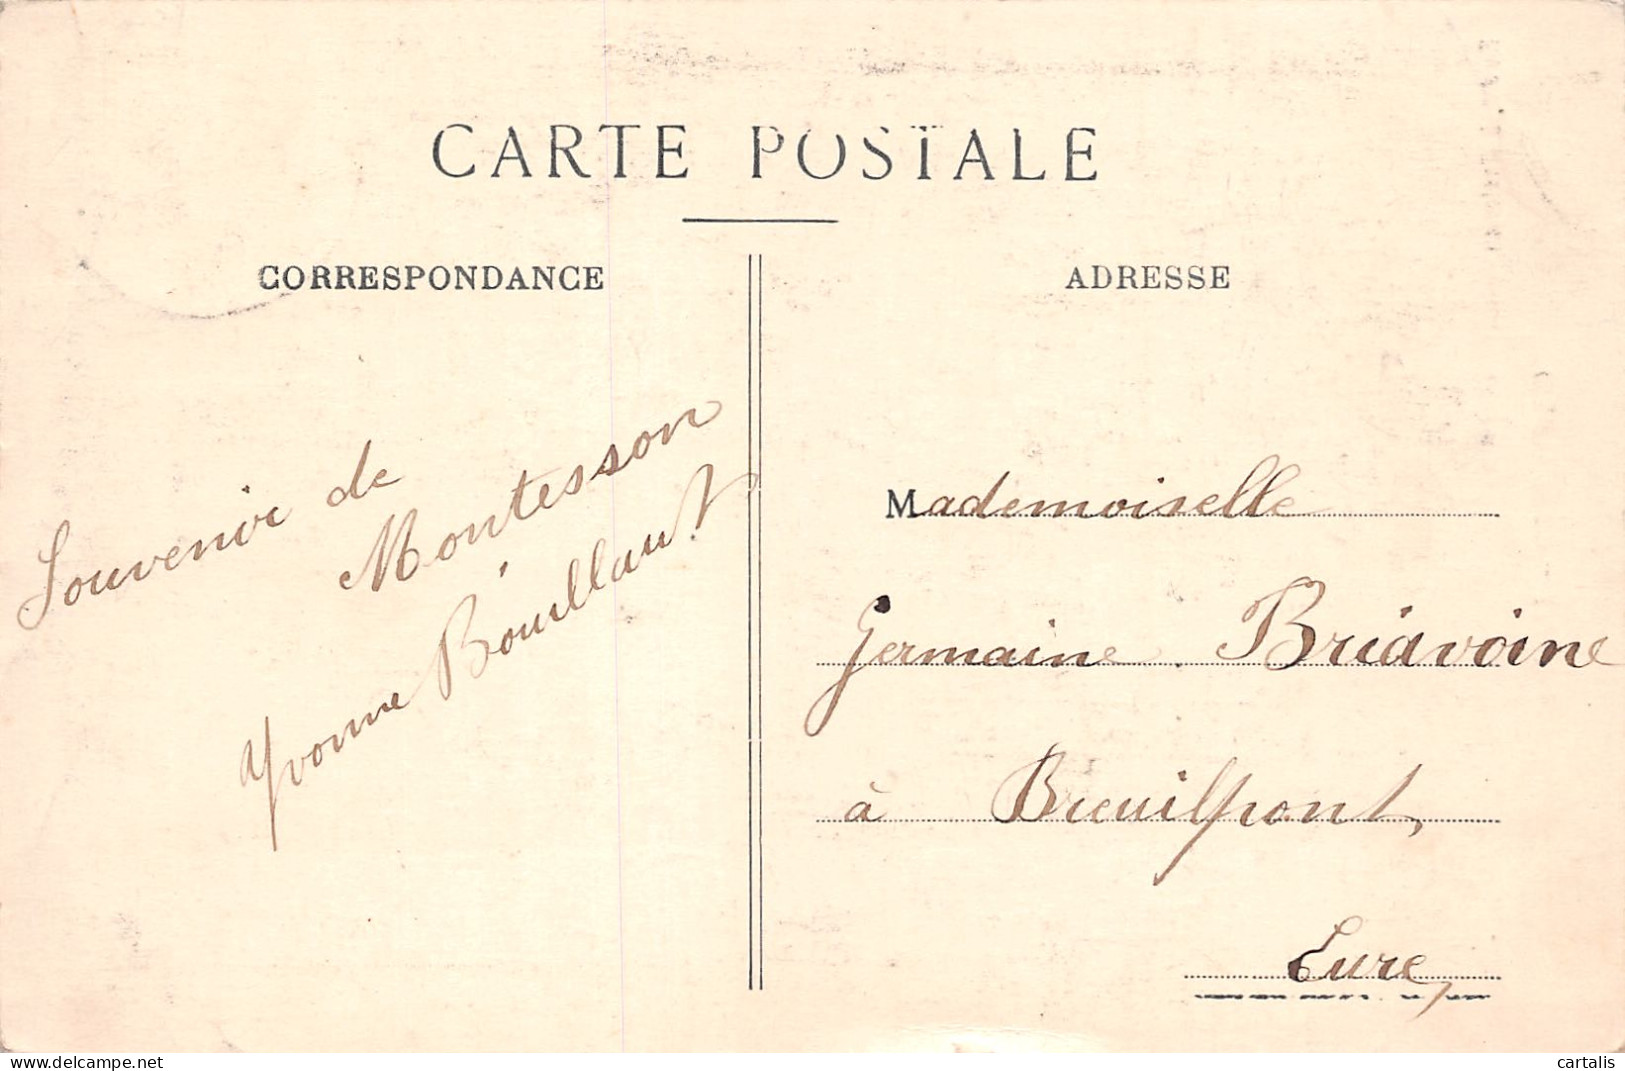 CARTE POSTALE
CORRESPONDANCE
Souvenir de
Montesson
Yvonne Bouillaut
ADRESSE
Mademoiselle
Germaine Briavoine
à Breuilpont
Eure
www.delcampe.net
cartalis